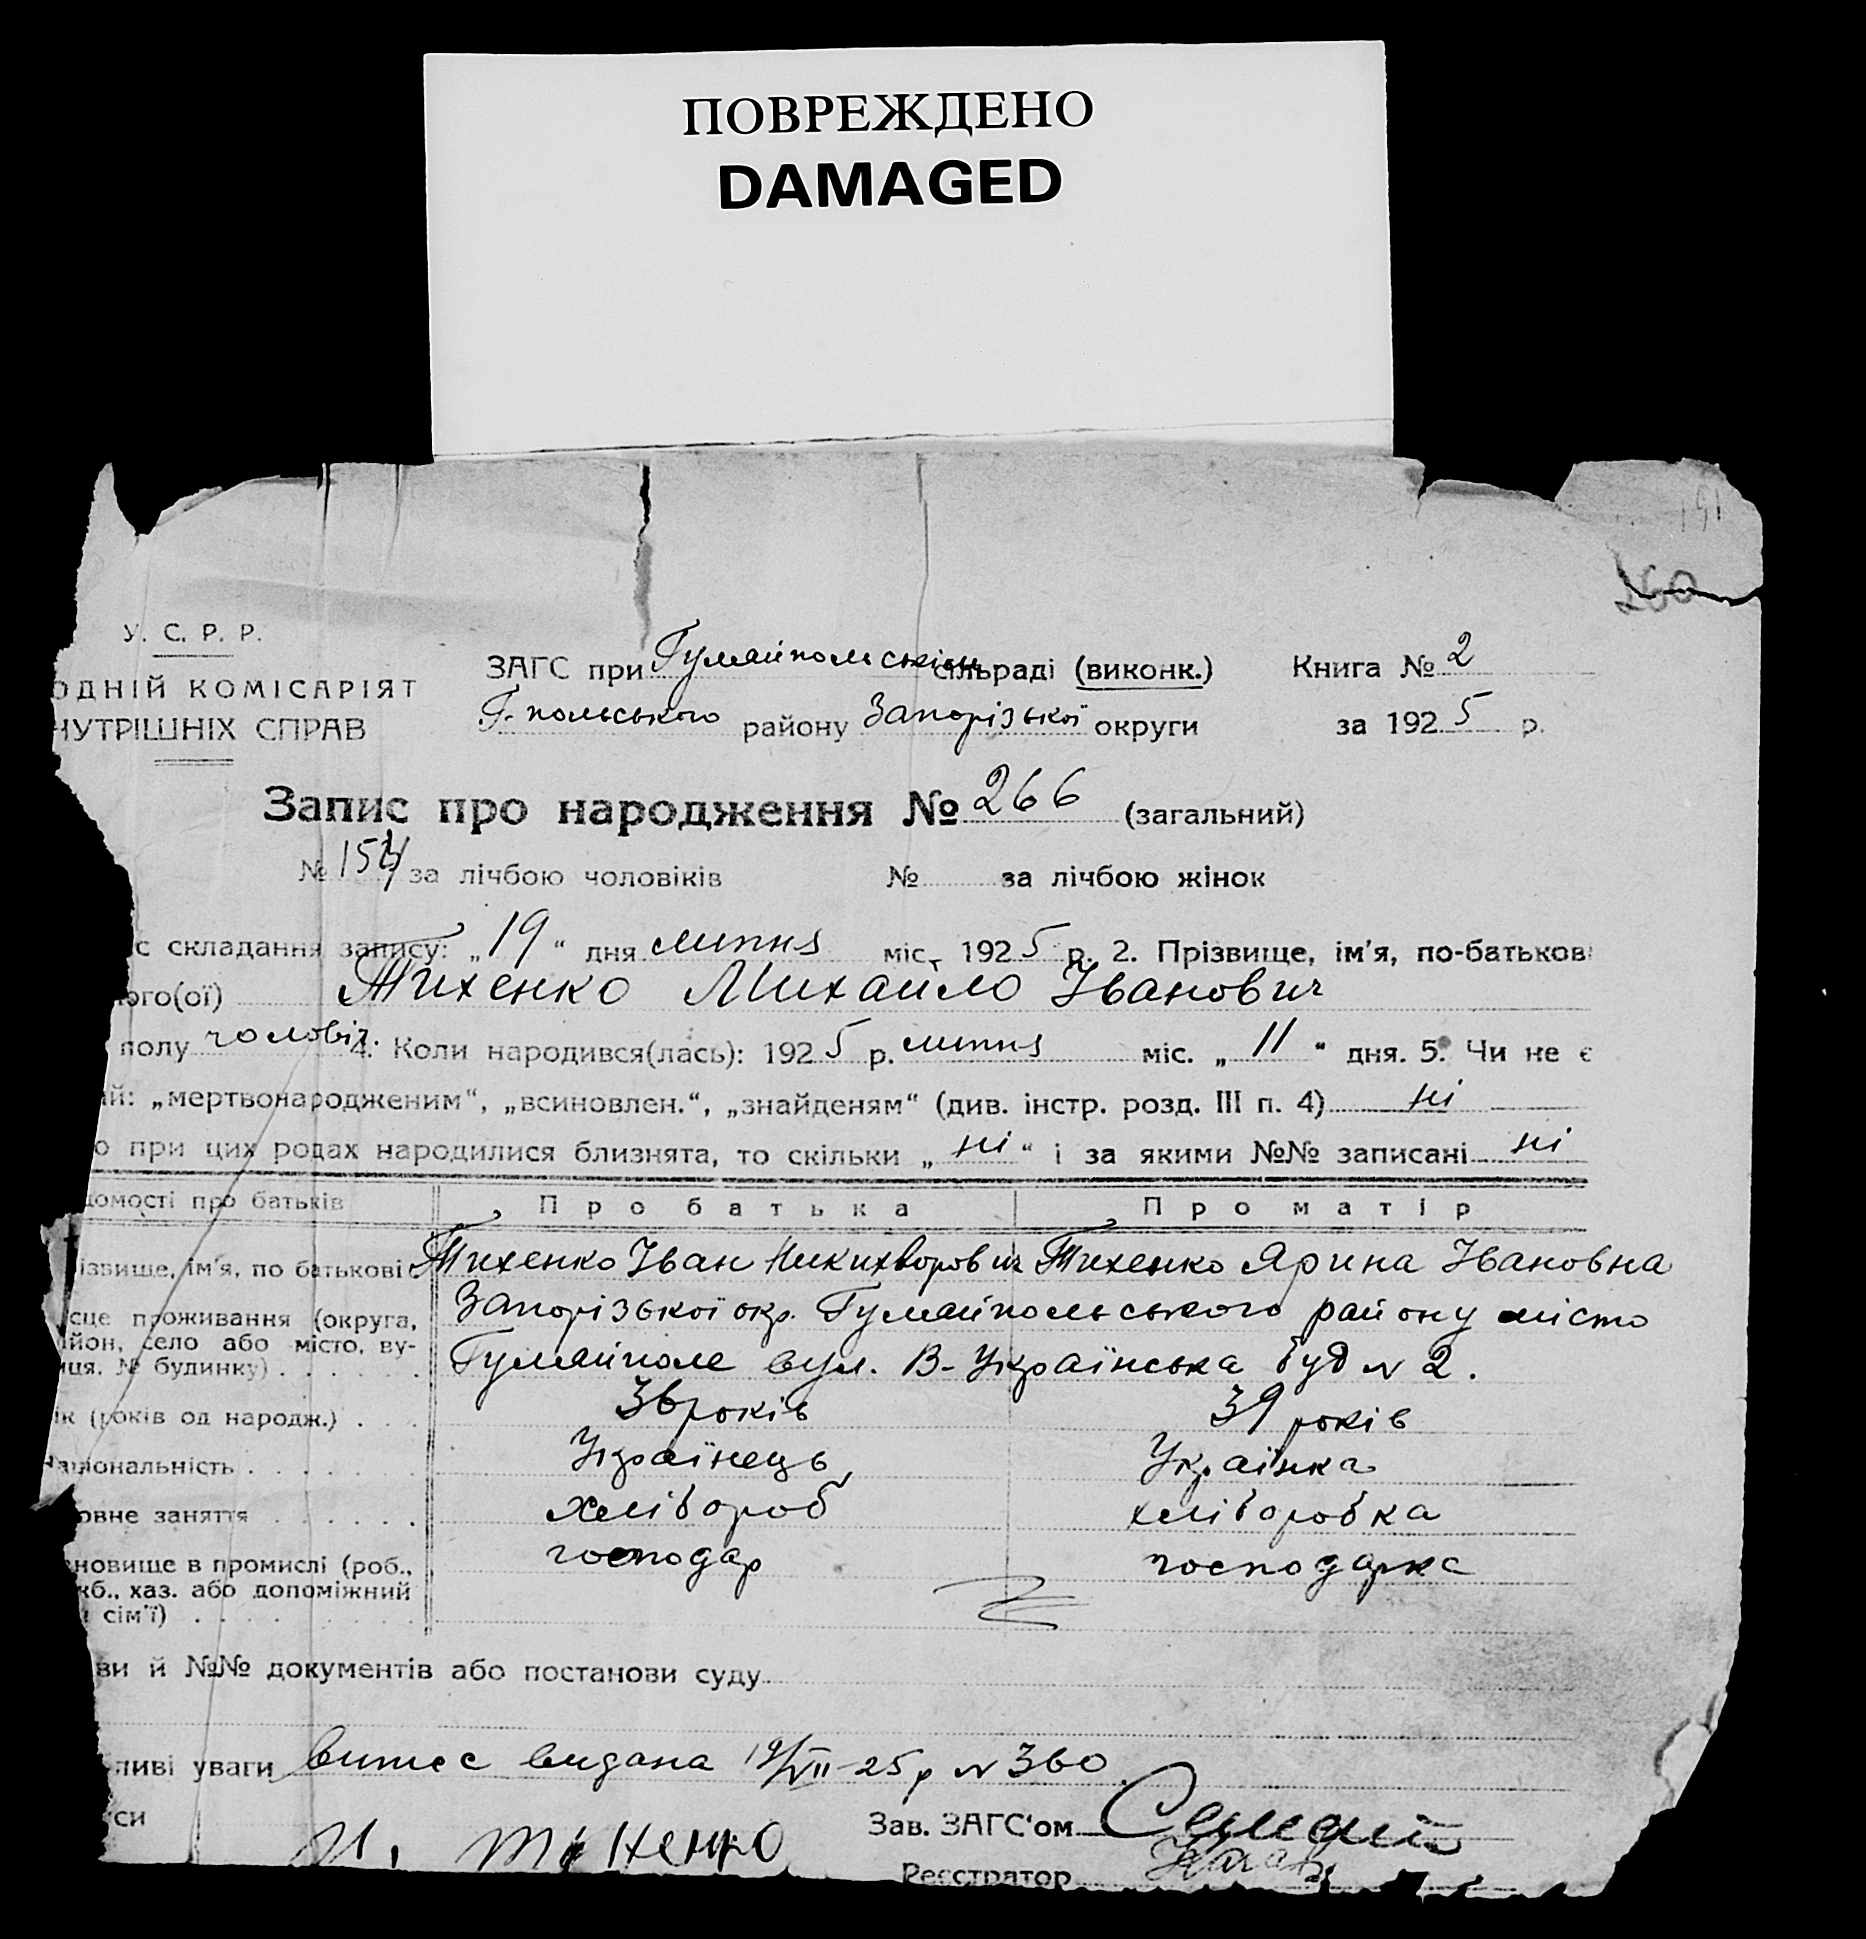 ПОВРЕЖДЕНО
DAMAGED
260
У. С. Р. Р.
ОДНІЙ КОМІСАРІЯТ
НУТРІШНІХ СПРАВ
ЗАГС при Гуляйпольський сільраді (виконк.) Книга № 2
Г.-польського району Запорізької округи за 1925 р.
Запис про народження № 266 (загальний)
№ 154 за лічбою чоловіків № за лічбою жінок
с складання запису: „19“ дня липня міс. 1925 р. 2. Прізвище, ім'я, по-батькові
ого(ої) Тихенко Михайло Іванович
полу чоловіч. 4. Коли народився(лась): 1925 р. липня міс. „11“ дня. 5. Чи не є
ий: „мертвонародженим“, „всиновлен.“, „знайденям“ (див. інстр. розд. III п. 4) ні
о при цих родах народилися близнята, то скільки „ні“ і за якими №№ записані ні
домості про батьків Про батька Про матір
ізвище, ім'я, по батькові Тихенко Іван Никихворович Тихенко Ярина Івановна
сце проживання (округа, Запорізької окр. Гуляйпольського району місто
йон, село або місто, ву-
иця, № будинку) Гуляйполе вул. В-Українська буд № 2.
ік (років од народж.) 36 років 39 років
Національність Українець Українка
овне заняття хлібороб хліборобка
ановище в промислі (роб., господар господарка
жб., хаз. або допоміжний
сім'ї)
ви й №№ документів або постанови суду
ливі уваги випис видана 19/VII-25 р № 360
си И. Тіхенко Зав. ЗАГС'ом
Реєстратор